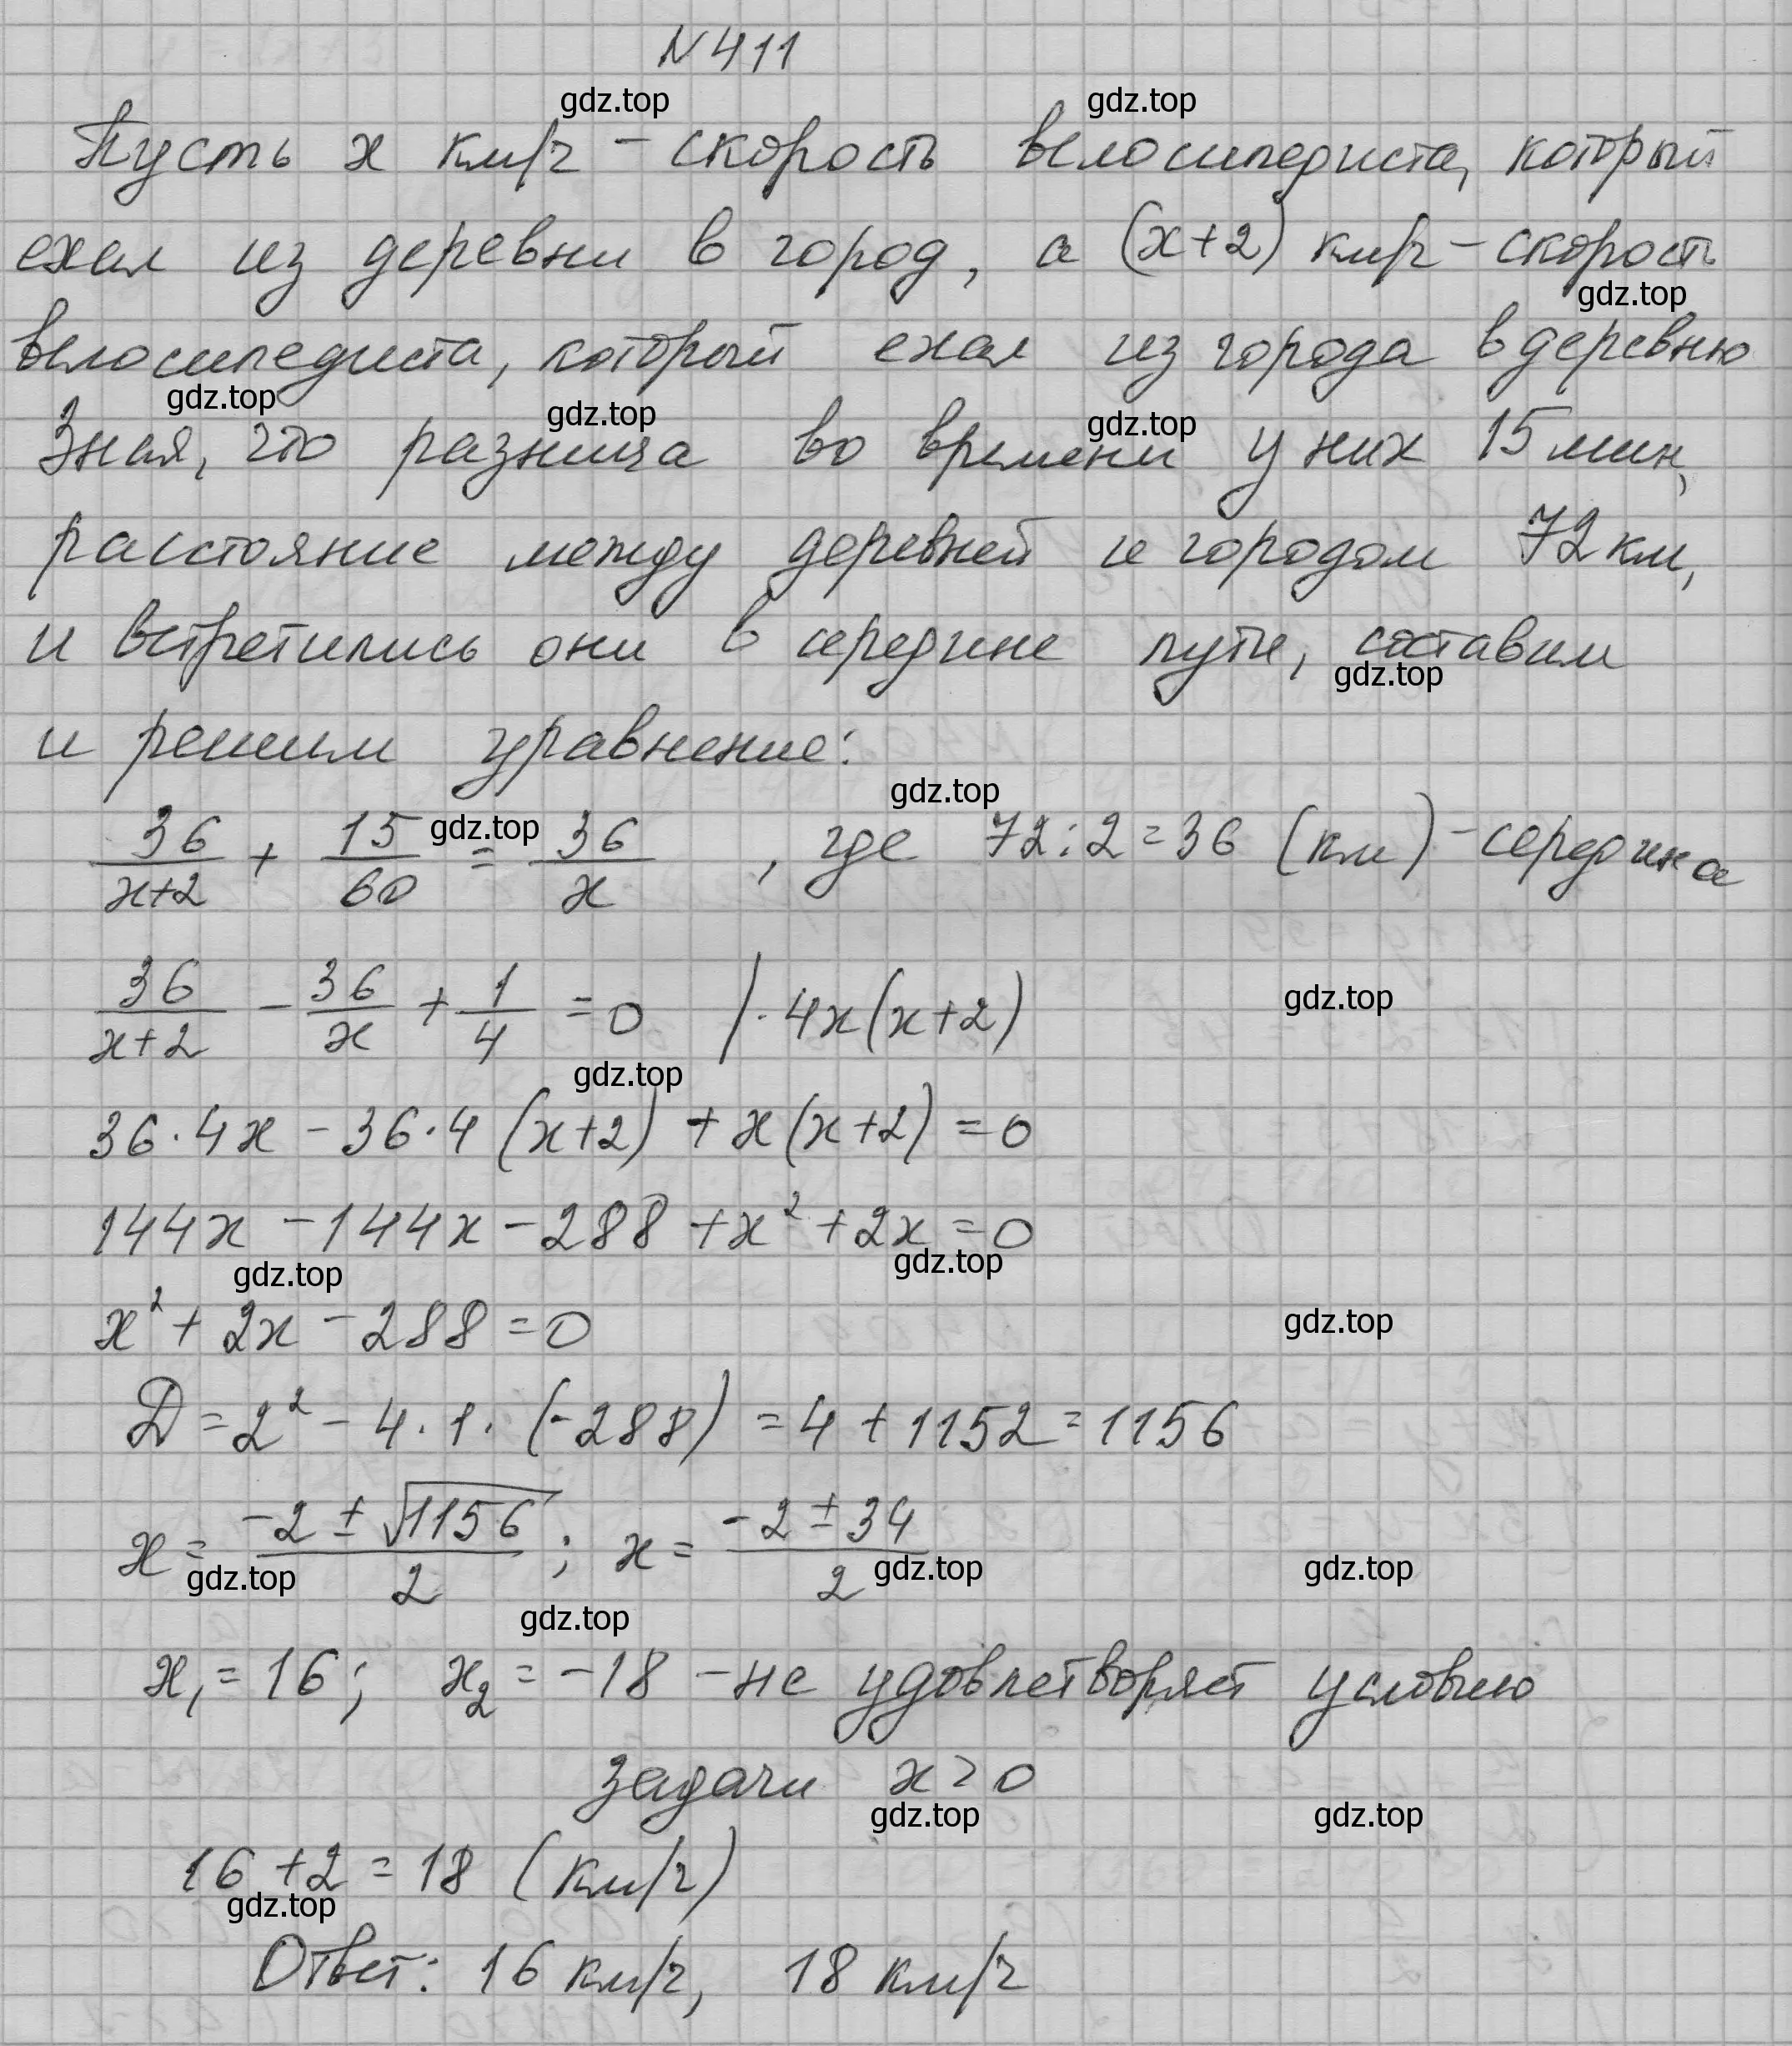 N 411
gdz.top gdz.top
Пусть x км/ч – скорость велосипедиста, который
ехал из деревни в город, а (x+2) км/ч – скорость
gdz.top
велосипедиста, который ехал из города в деревню
gdz.top gdz.top gdz.top
Зная, что разница во времени у них 15 мин,
расстояние между деревней и городом 72 км,
и встретились они в середине пути, составим
gdz.top
и решим уравнение:
gdz.top
36/(x+2) + 15/60 = 36/x , где 72:2=36 (км) – середина
gdz.top
36/(x+2) – 36/x + 1/4 = 0 /· 4x(x+2)
gdz.top
gdz.top
36·4x – 36·4 (x+2) + x(x+2) = 0
144x – 144x – 288 + x² + 2x = 0
gdz.top gdz.top
x² + 2x – 288 = 0
gdz.top
D = 2² – 4·1·(-288) = 4 + 1152 = 1156
x = (-2 ± √1156)/2 ; x = (-2 ± 34)/2
gdz.top gdz.top gdz.top
gdz.top
x₁ = 16; x₂ = -18 – не удовлетворяет условию
задачи x > 0
gdz.top gdz.top
16 + 2 = 18 (км/ч)
gdz.top
Ответ: 16 км/ч, 18 км/ч